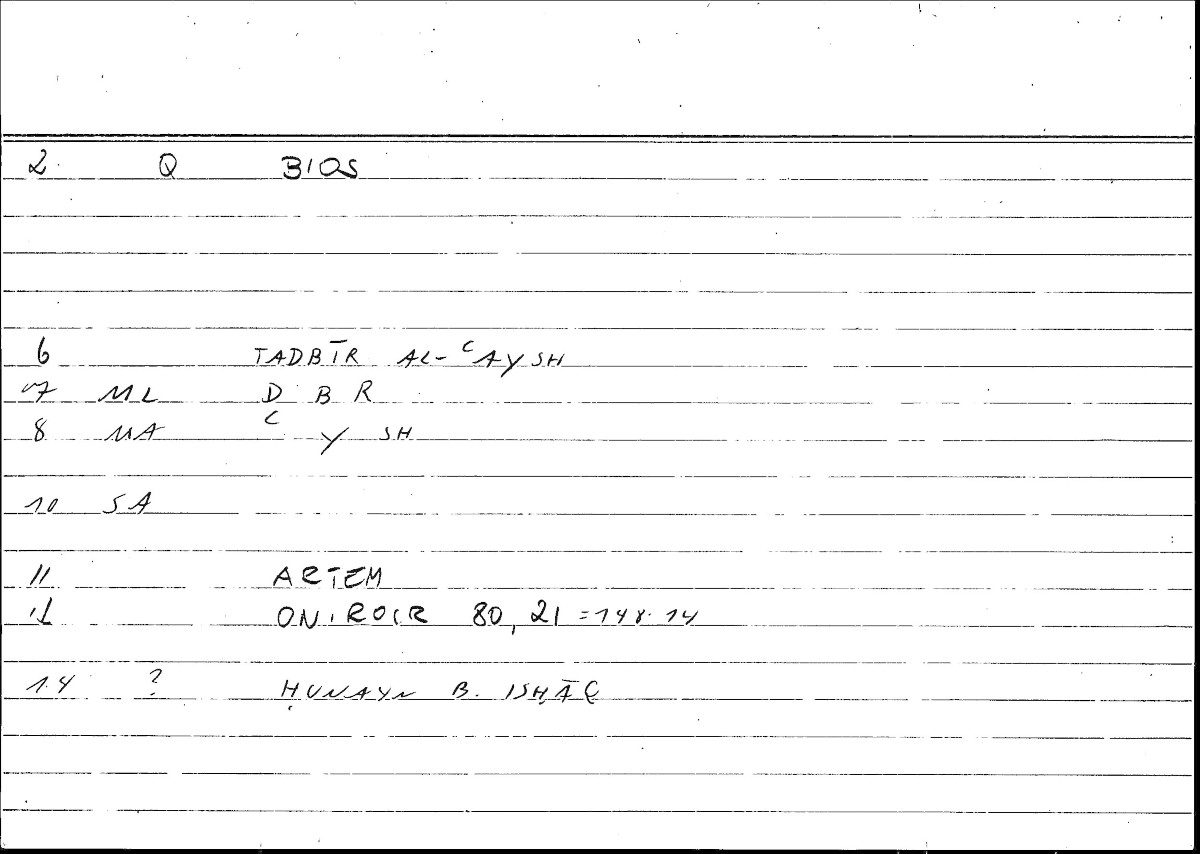 2 Q BIOS
6 TADBĪR AL-ʿAYSH
7 ML D B R
8 MA ʿ Y SH
10 SA
11 ARTEM
ONIROCR 80, 21 = 148.14
14 ? ḤUNAYN B. ISḤĀQ